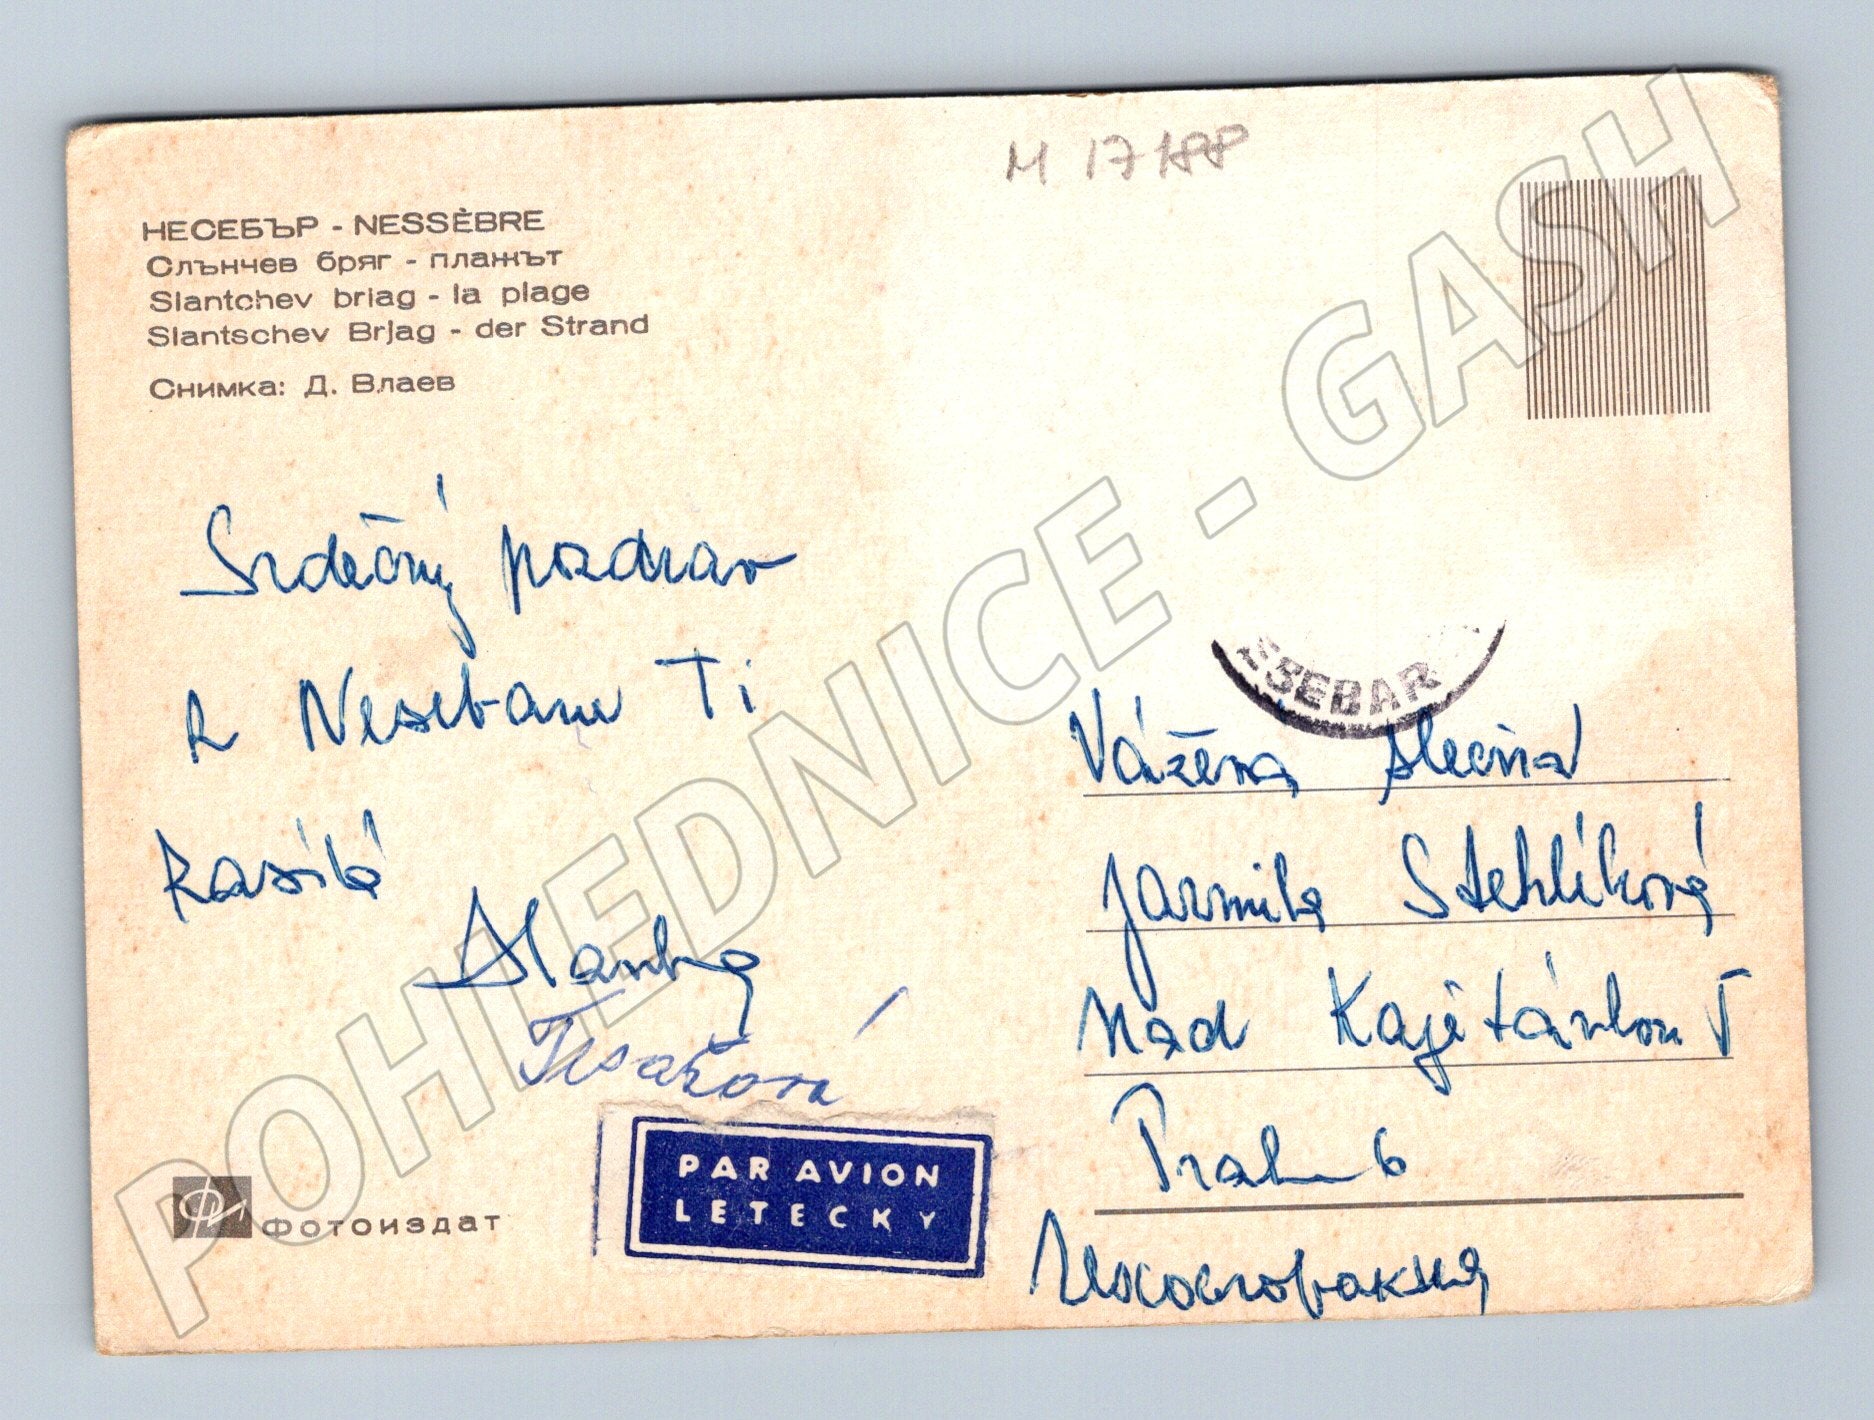 M 17188
НЕСЕБЪР - NESSÈBRE
Слънчев бряг - плажът
Slantchev briag - la plage
Slantschev Brjag - der Strand
Снимка: Д. Влаев
Srdečný pozdrav
z Nesebaru Ti
zasílá
Stanka
Tesařová
ESEBAR
Vážená slečna
Jarmila Stehlíková
Nad Kajetánkou
Praha 6
Чехословакия
PAR AVION
LETECKY
Фотоиздат
POHLEDNICE - GASH